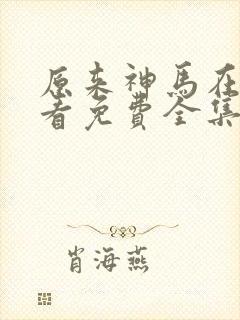 原来神马在
看免费全集
肖海燕